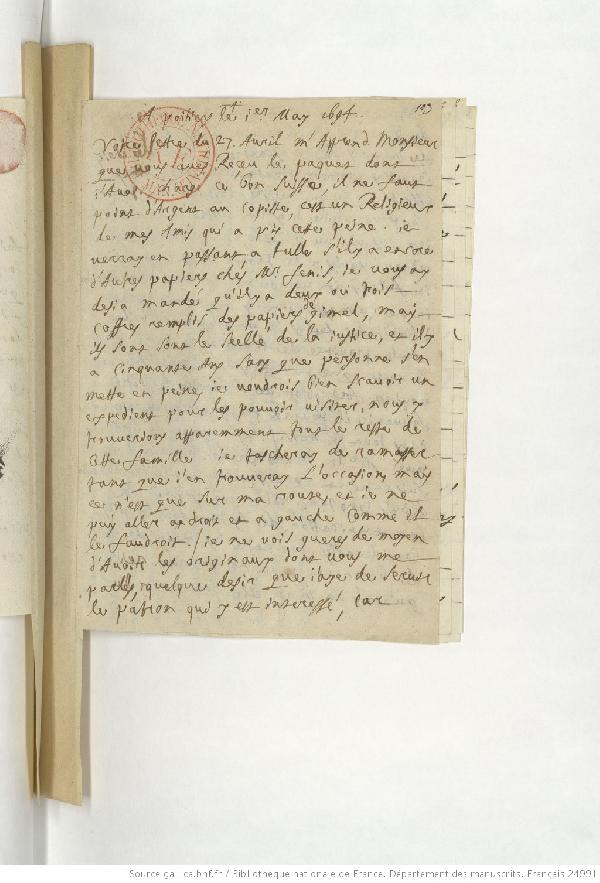 A poitiers le 1er May 1694.
193
Votre lettre du 27. Auril m'Apprend Monsieur
que vous aues Receu le paquet dont
i'auois chargé Bon suisse, il ne faut
point d'Argent au copiste, c'est un Religieux
de mes Amis qui a pris cette peine. ie
verray en passant a tulle s'il y a encore
d'Autres papiers ches Mr. fenis, ie vous ay
desia mandé qu'il y a deux ou trois
coffres remplis des papiers de gimel, mais
ils sont sous le scellé de la iustice, et il y
a cinquante Ans sans que personne s'en
mette en peine, ie voudrois bien scauoir un
expedient pour les pouuoir uisiter, nous y
trouuerions apparemment tout le reste de
cette famille ie tascheray de ramasser
tant que i'en trouueray l'occasion, mais
ce n'est que sur ma route, et ie ne
puis aller a droit et a gauche comme il
le faudroit. / ie ne vois gueres de moyen
d'Auoir les originaux dont vous me
parlés, quelque desir que i'aye de seruir
le patron qui y est interessé, car
Source gallica.bnf.fr / Bibliothèque nationale de France. Département des manuscrits. Français 24991